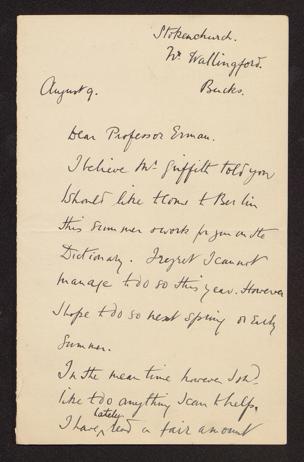 Stokenchurch.
Nr. Wallingford.
Bucks.
August 9.
Dear Professor Erman.
I believe Mr Griffith told you
I should like to come to Berlin
this summer & work for you on the
Dictionary. I regret I cannot
manage to do so this year. However
I hope to do so next spring or early
summer.
In the mean time however I shd.
like to do anything I can to help.
lately
I have read a fair amount